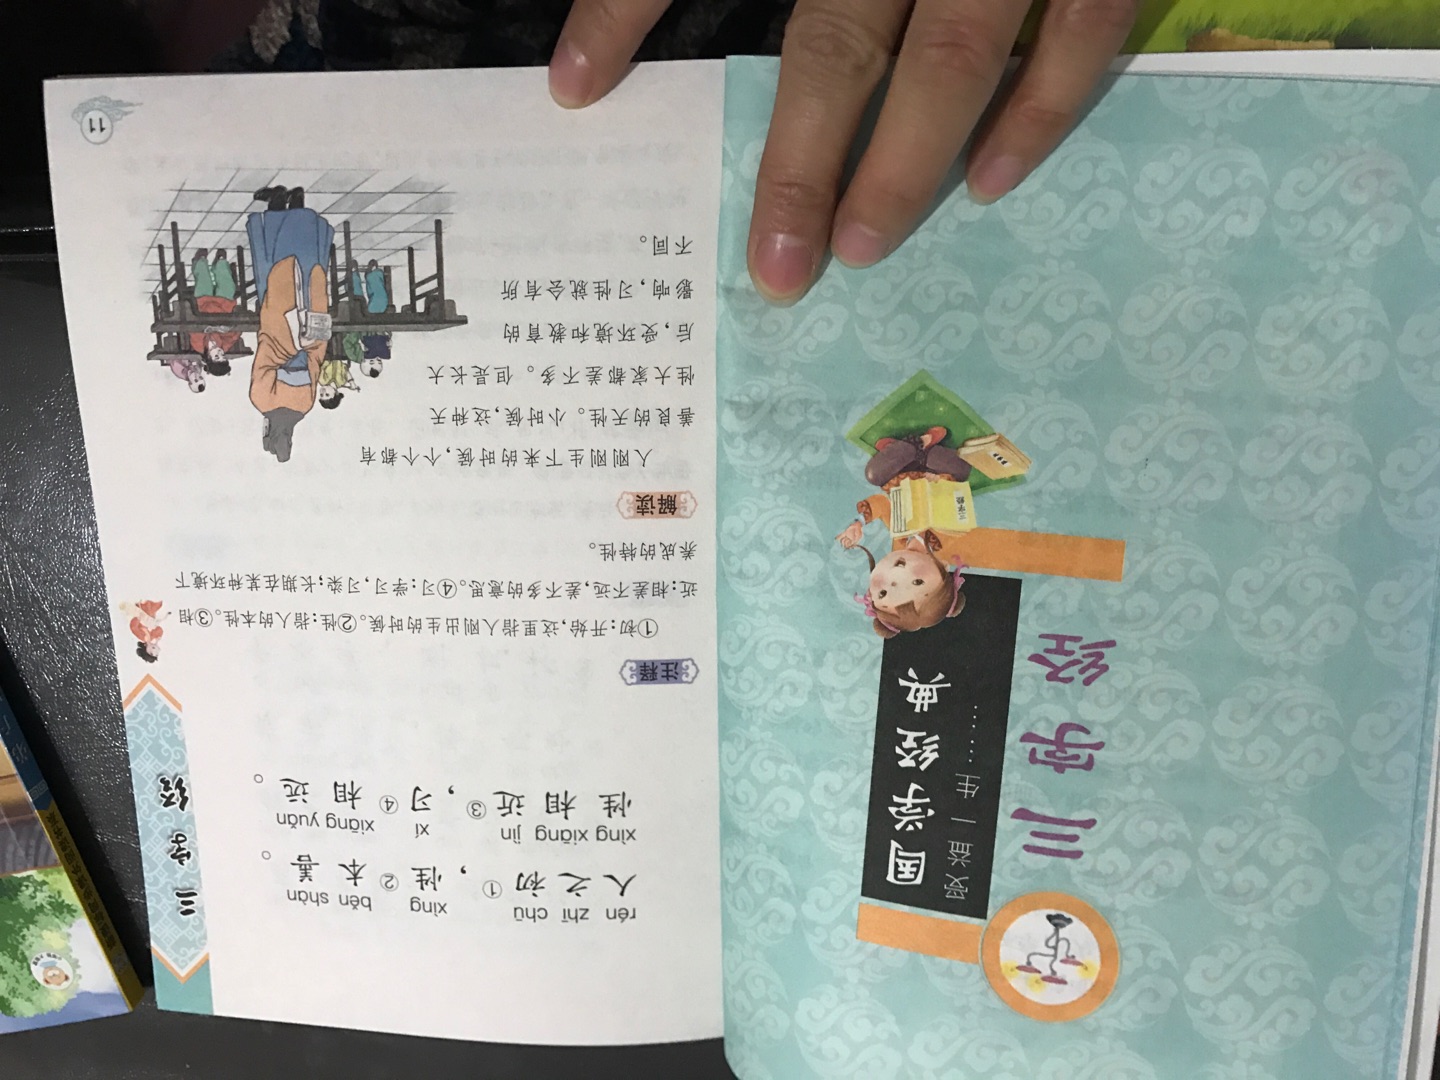 国学经典
受益一生……
三字经
三字经
rén zhī chū xìng běn shàn
人之初①，性②本善。
xìng xiāng jìn xí xiāng yuǎn
性相近③，习④相远。
注释
①初：开始，这里指人刚出生的时候。②性：指人的本性。③相
近：相差不远，差不多的意思。④习：学习，习染；长期在某种环境下
养成的特性。
解读
人刚刚生下来的时候，个个都有
善良的天性。小时候，这种天
性大家都差不多。但是长大
后，受环境和教育的
影响，习性就会有所
不同。
11